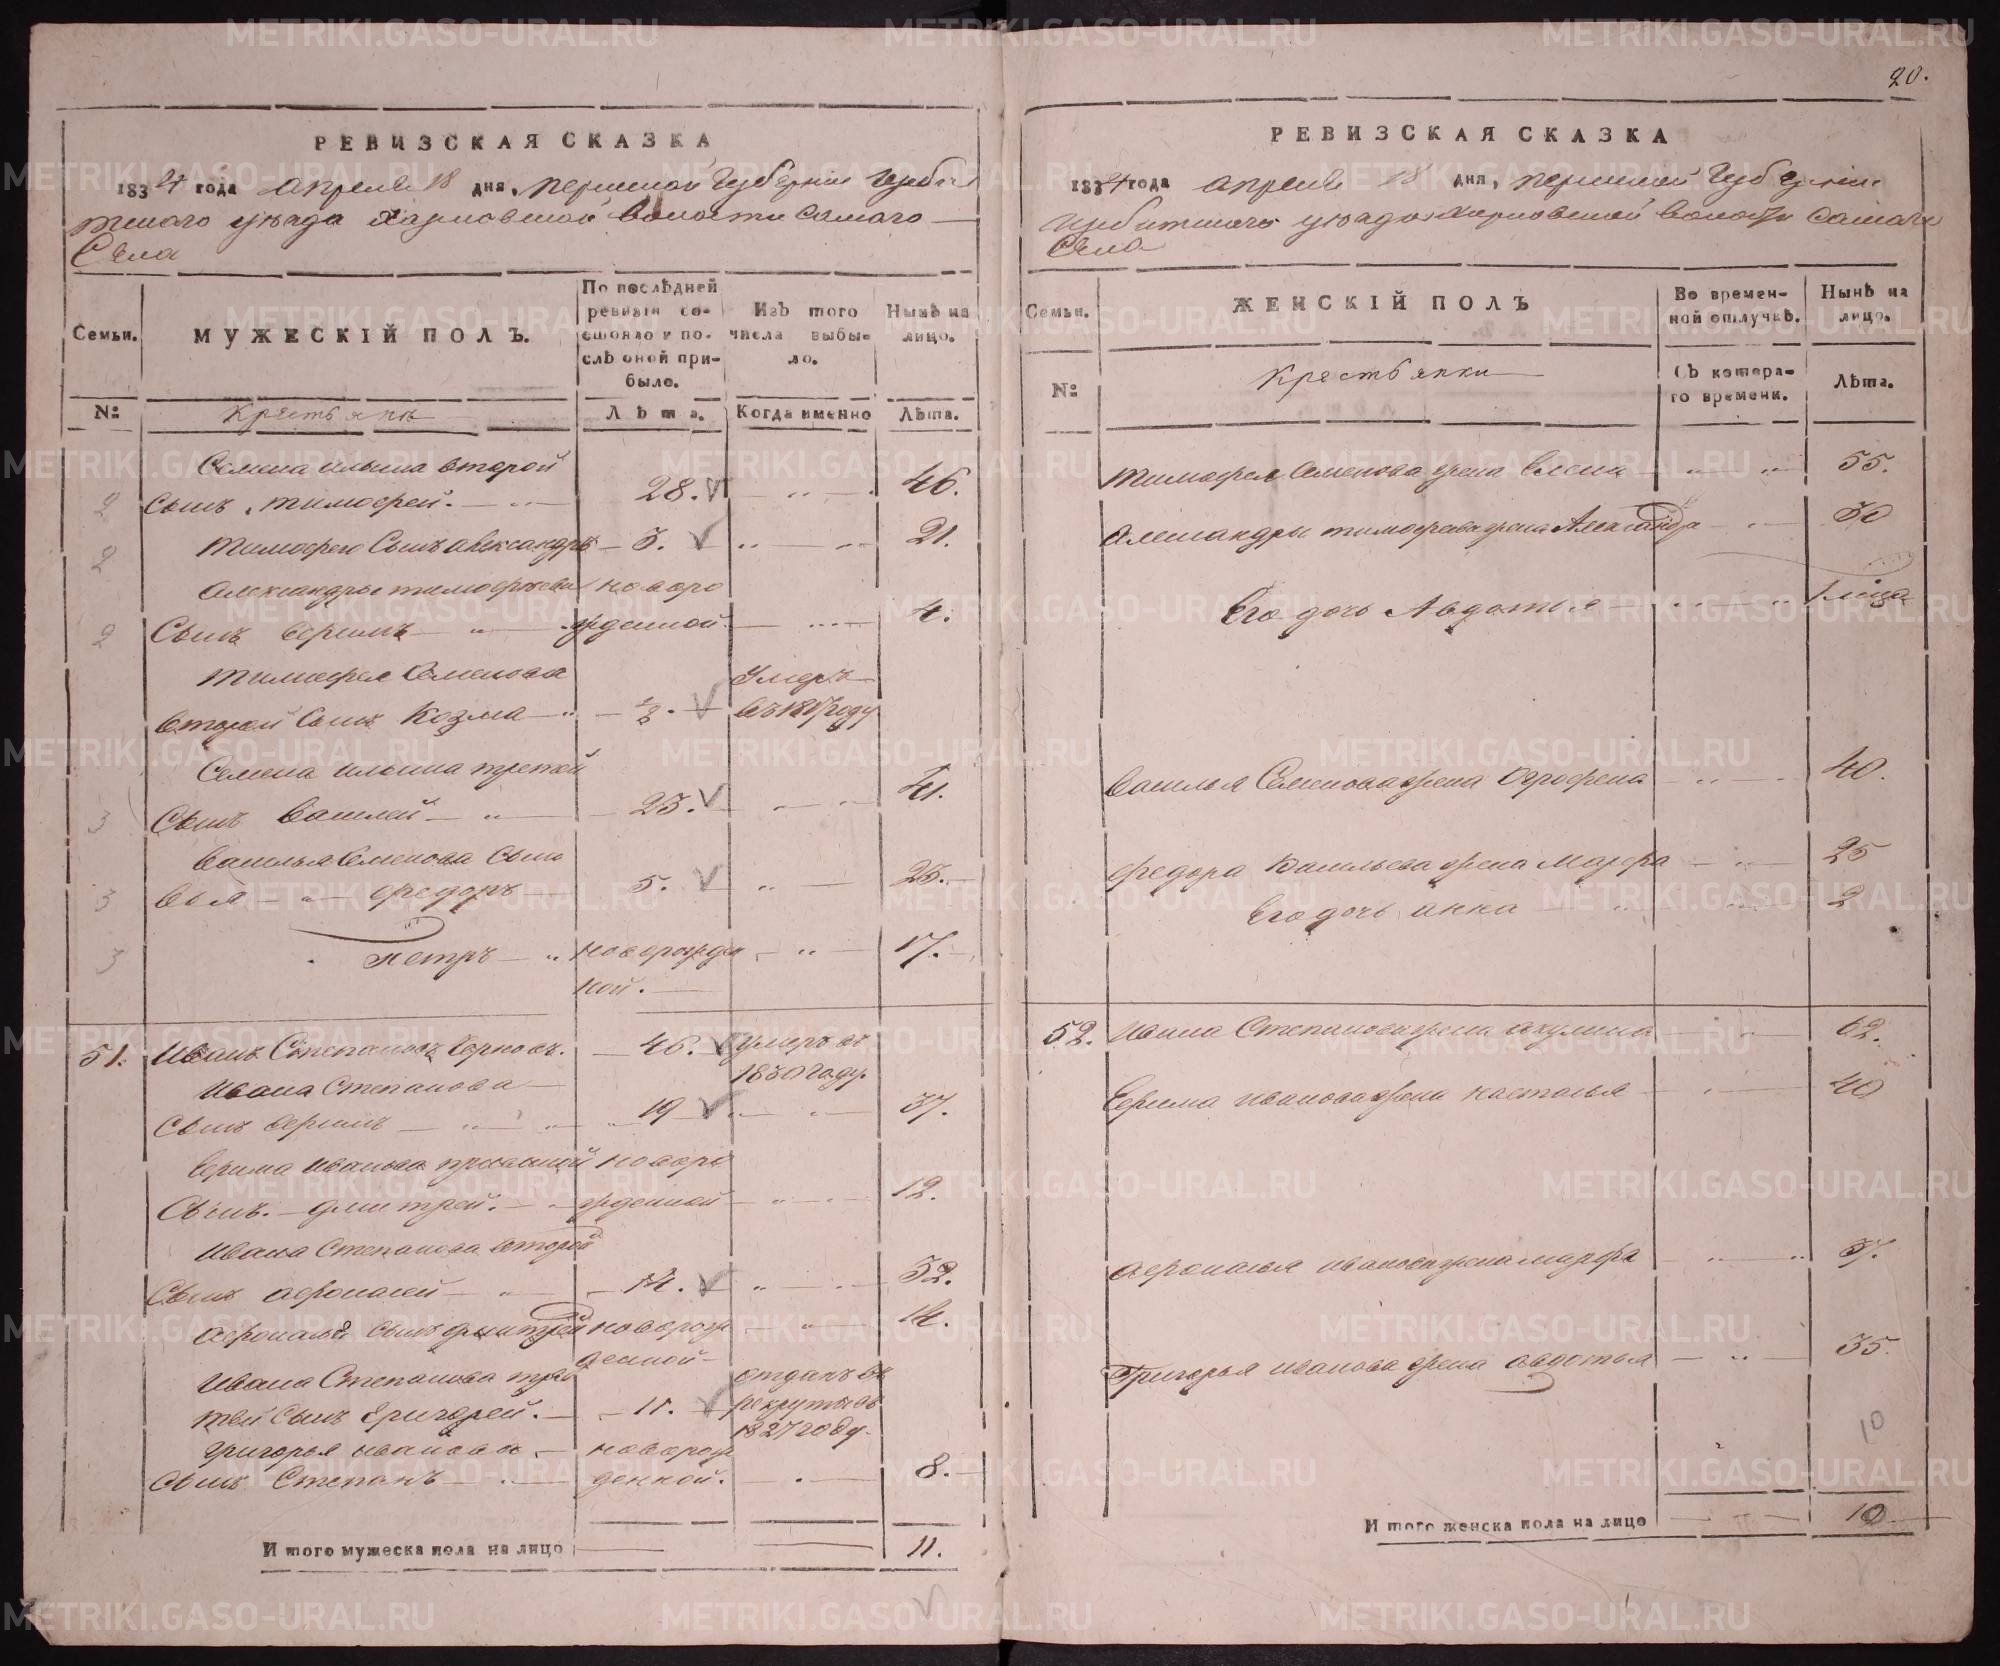 РЕВИЗСКАЯ СКАЗКА
1834 года апреля 18 дня, пермской Губернии Ирби
тскаго уезда Харловской волости самаго
Села
Семьи.
МУЖЕСКІЙ ПОЛЪ.
По послѣдней
ревизіи со-
стояло и по-
слѣ оной при-
было.
Изъ того
числа выбы-
ло.
Нынѣ на
лицо.
№
Крестьяне
Лѣта.
Когда именно
Лѣта.
Семена ильина второй
2 сынъ тимофей. 28. 46.
2 тимофея Сынъ александръ 3. 21.
Александры тимофеева новоро
2 Сынъ ефимъ жденной 4.
тимофея Семенова Умеръ
второй сынъ Козма ½. въ 18 году
Семена ильина третей
3 Сынъ василей 25. 41.
Василья Семенова сыно
3 вья федоръ 5. 23.
3 Петръ новорожде 17.
ной.
51. Иванъ Степановъ 46. умеръ въ
1830 году.
Ивана Степанова
Сынъ ефимъ 19 37.
Ефима иванова новоро
Сынъ. дмитрей. жденной 12.
Ивана Степанова второй
Сынъ афонасей 14. 32.
афонасья сынъ дмитрей новорож 14.
денной
Ивана Степанова тре отданъ въ
тей сынъ Григорей. 11. рекруты въ
1827 году.
Григорья иванова новорож
сынъ Степанъ денной. 8.
Итого мужеска пола на лицо 11.
20.
РЕВИЗСКАЯ СКАЗКА
1834 года апреля 18 дня, пермской Губернии
ирбитскаго уезда Харловской волости самаго
Села
Семьи.
ЖЕНСКІЙ ПОЛЪ
Во времен-
ной отлучкѣ.
Нынѣ на
лицо.
№
Крестьянки
Съ котора-
го времени.
Лѣта.
тимофея Семенова жена елена 55.
александры тимофеева жена Александра 30
Его дочь Авдотья
Василья Семенова жена Огрофена 40.
федора Васильева жена Марфа 25
Его дочь анна 2
52. Ивана Степанова жена акулина 62.
Ефима иванова жена настасья 40
афонасья иванова жена марфа 37.
Григорья иванова жена авдотья 35.
10
Итого женска пола на лицо 10
METRIKI.GASO-URAL.RU